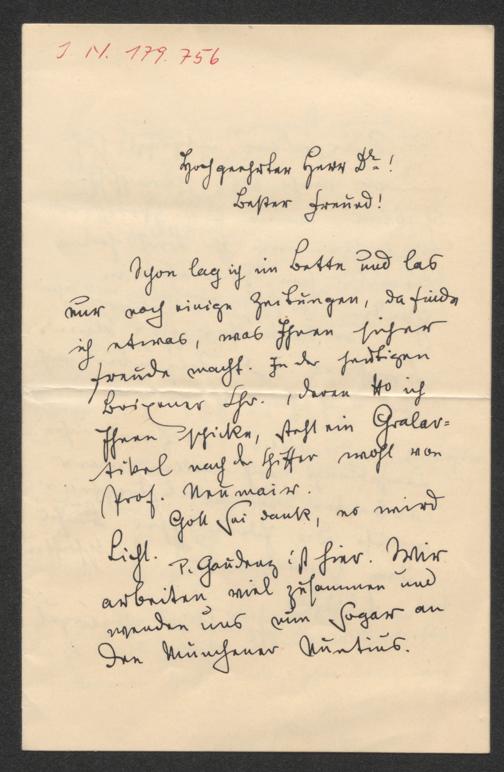 I N. 179.756
Hochgeehrter Herr Dr.!
Bester Freund!
Schon lag ich im Bette und las
nur noch einige Zeitungen, da finde
ich etwas, was Ihnen sicher
Freude macht. In der heutigen
Brixener Chr., deren No ich
Ihnen schicke, steht ein Gralar=
tikel nach der Chiffer wohl von
Prof. Neumair.
Gott sei dank, es wird
Licht. P. Gaudenz ist hier. Wir
arbeiten viel zusammen und
wenden uns nun sogar an
den Münchener Nuntius.